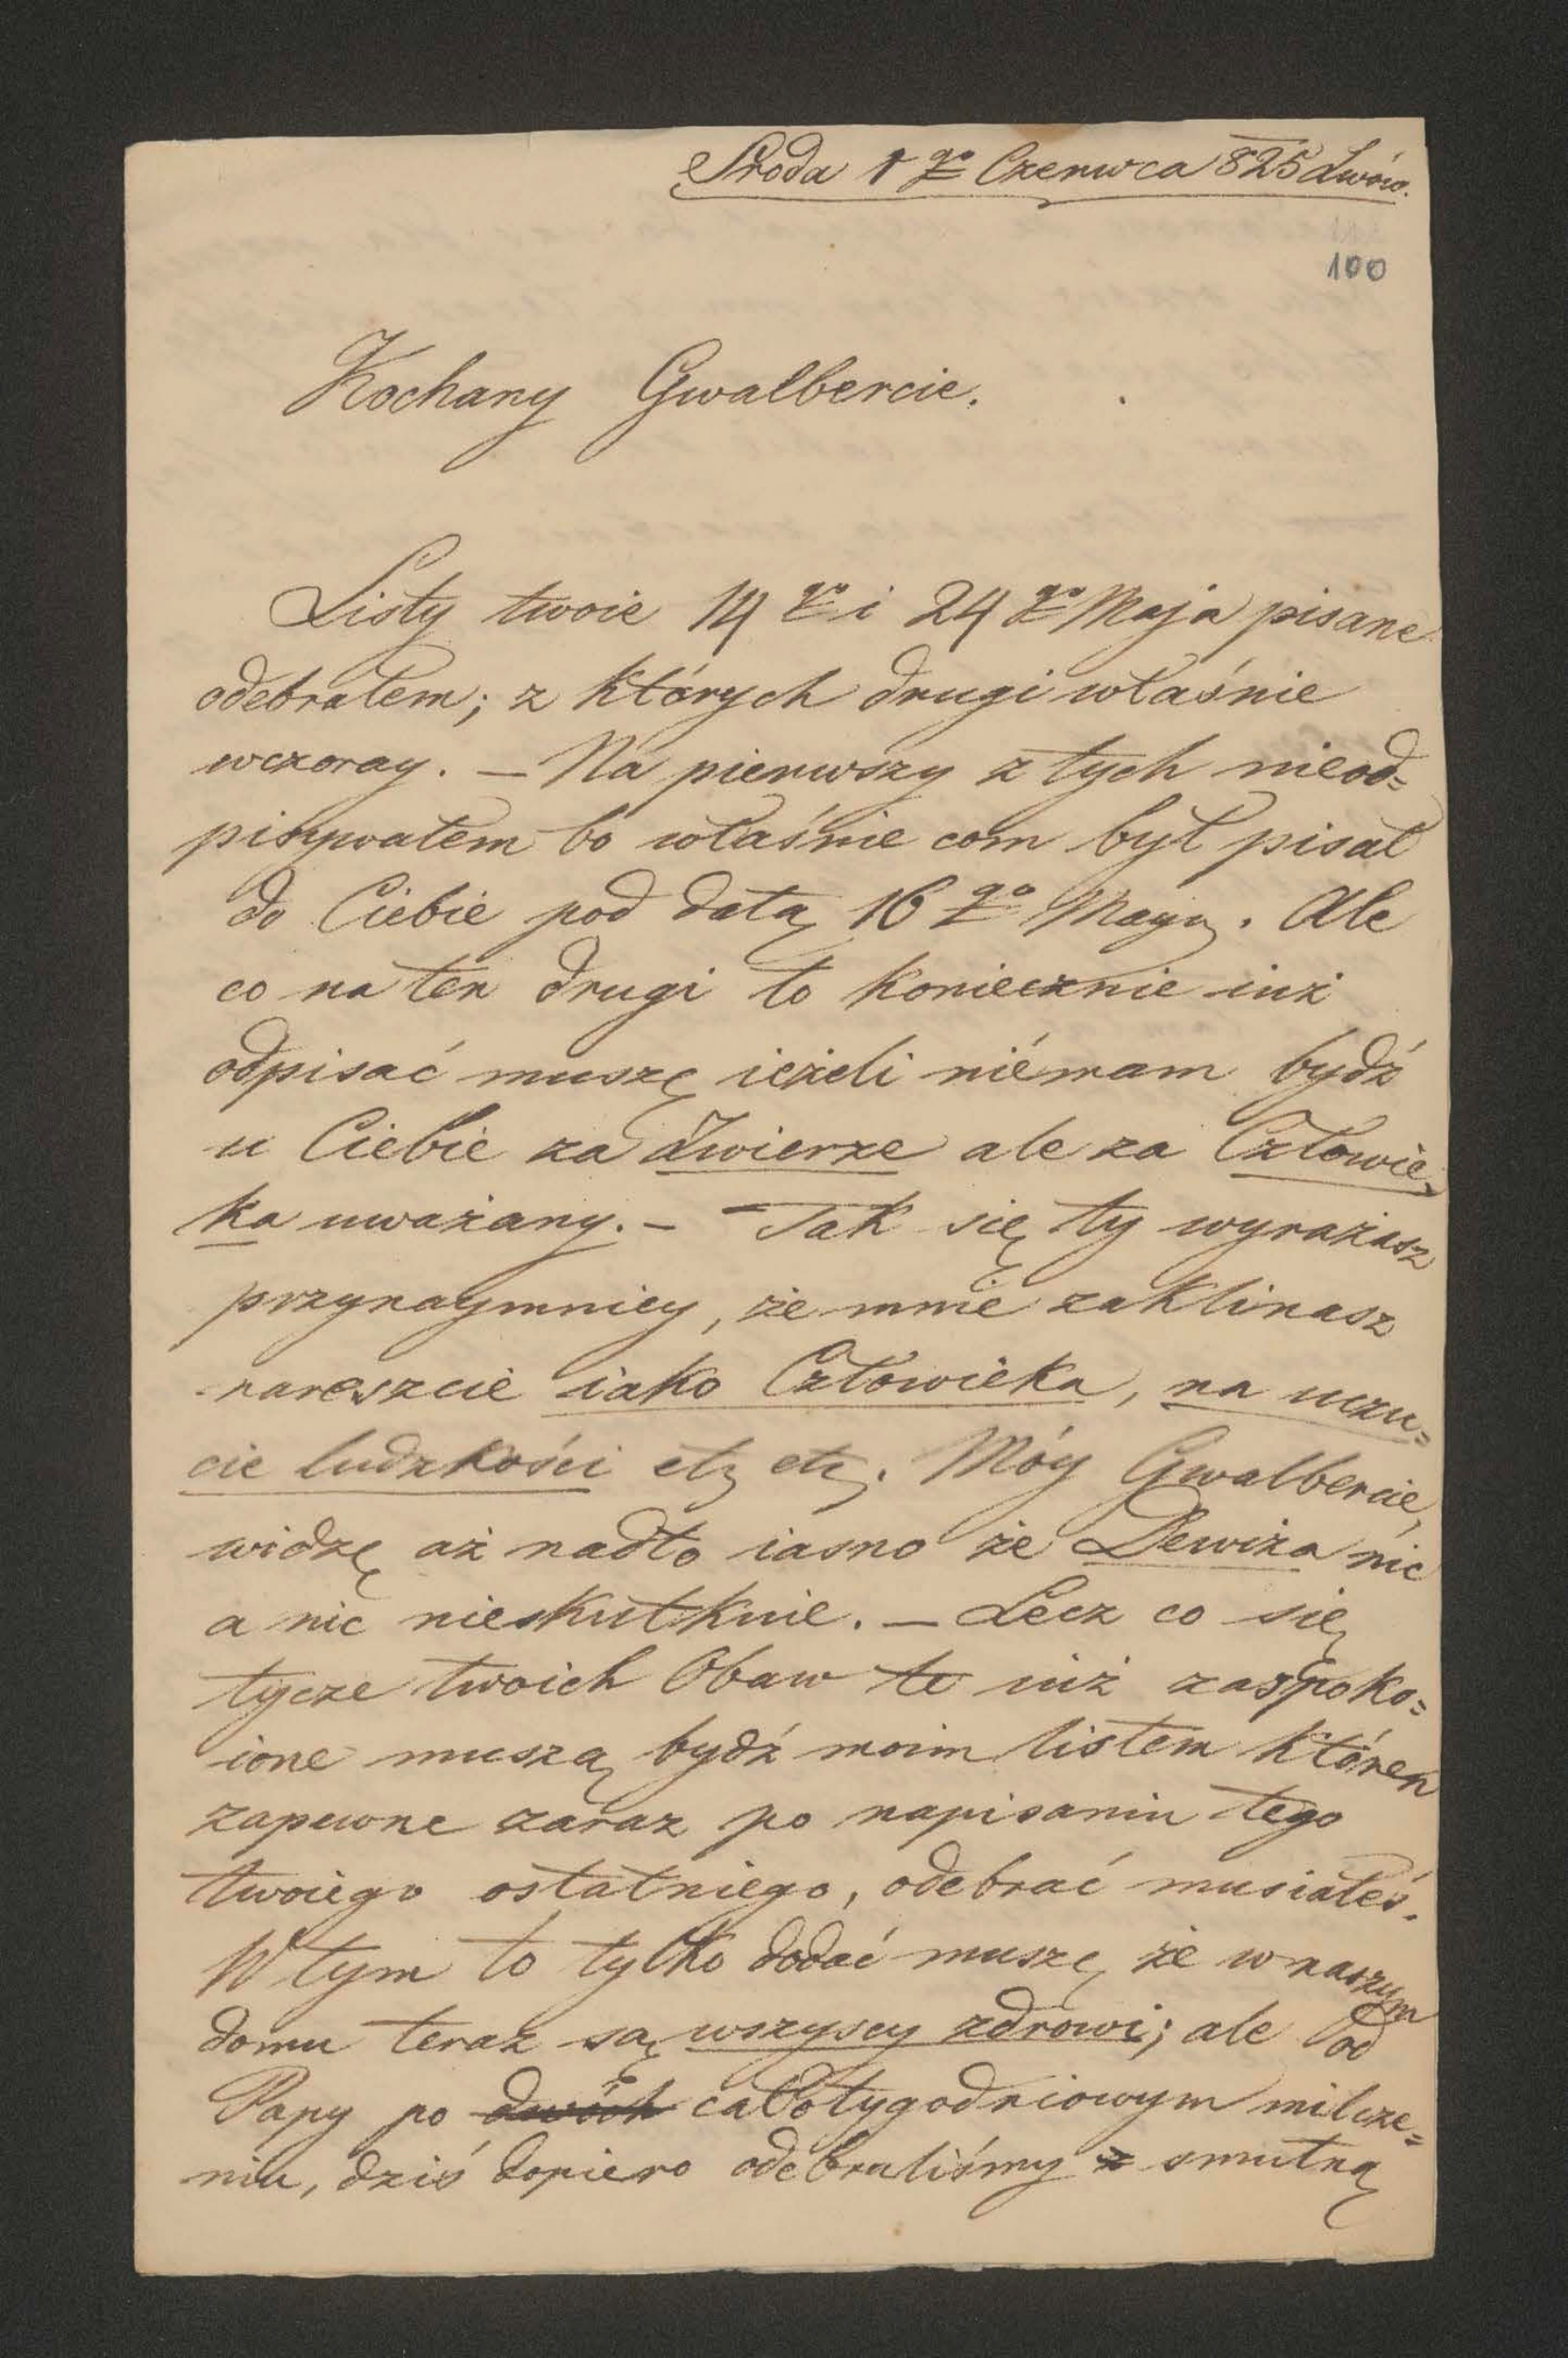 Sroda 1go Czerwca 825 Lwów.
100
Kochany Gwalbercie.
Listy twoie 14go i 24go Maja pisane
odebrałem; z których drugi właśnie
wczoray. — Na pierwszy z tych nieod=
pisywałem bo właśnie com był pisał
do Ciebie pod datą 16go Maya. Ale
co na ten drugi to koniecznie iuż
odpisać muszę ieżeli niémam bydź
u Ciebie za Zwierze ale za Człowie,
ka uważany. — Tak się ty wyrażasz
przynaymniey, że mnie zaklinasz
nareszcie iako Człowieka, na uczu=
cie ludzkości etz etz. Móy Gwalbercie,
widzę aż nadto iasno że Dewiza nic
a nic nieskutkuie. — Lecz co się
tycze twoich Obaw te iuż zaspoko=
ione muszą bydź moim listem któren
zapewne zaraz po napisaniu tego
twoiego ostatniego, odebrać musiałeś.
W tym to tylko dodać muszę że w naszym
domu teraz są wszyscy zdrowi; ale od
Papy po dwóch całotygodniowym milcze=
niu, dziś dopiero odebraliśmy z smutną